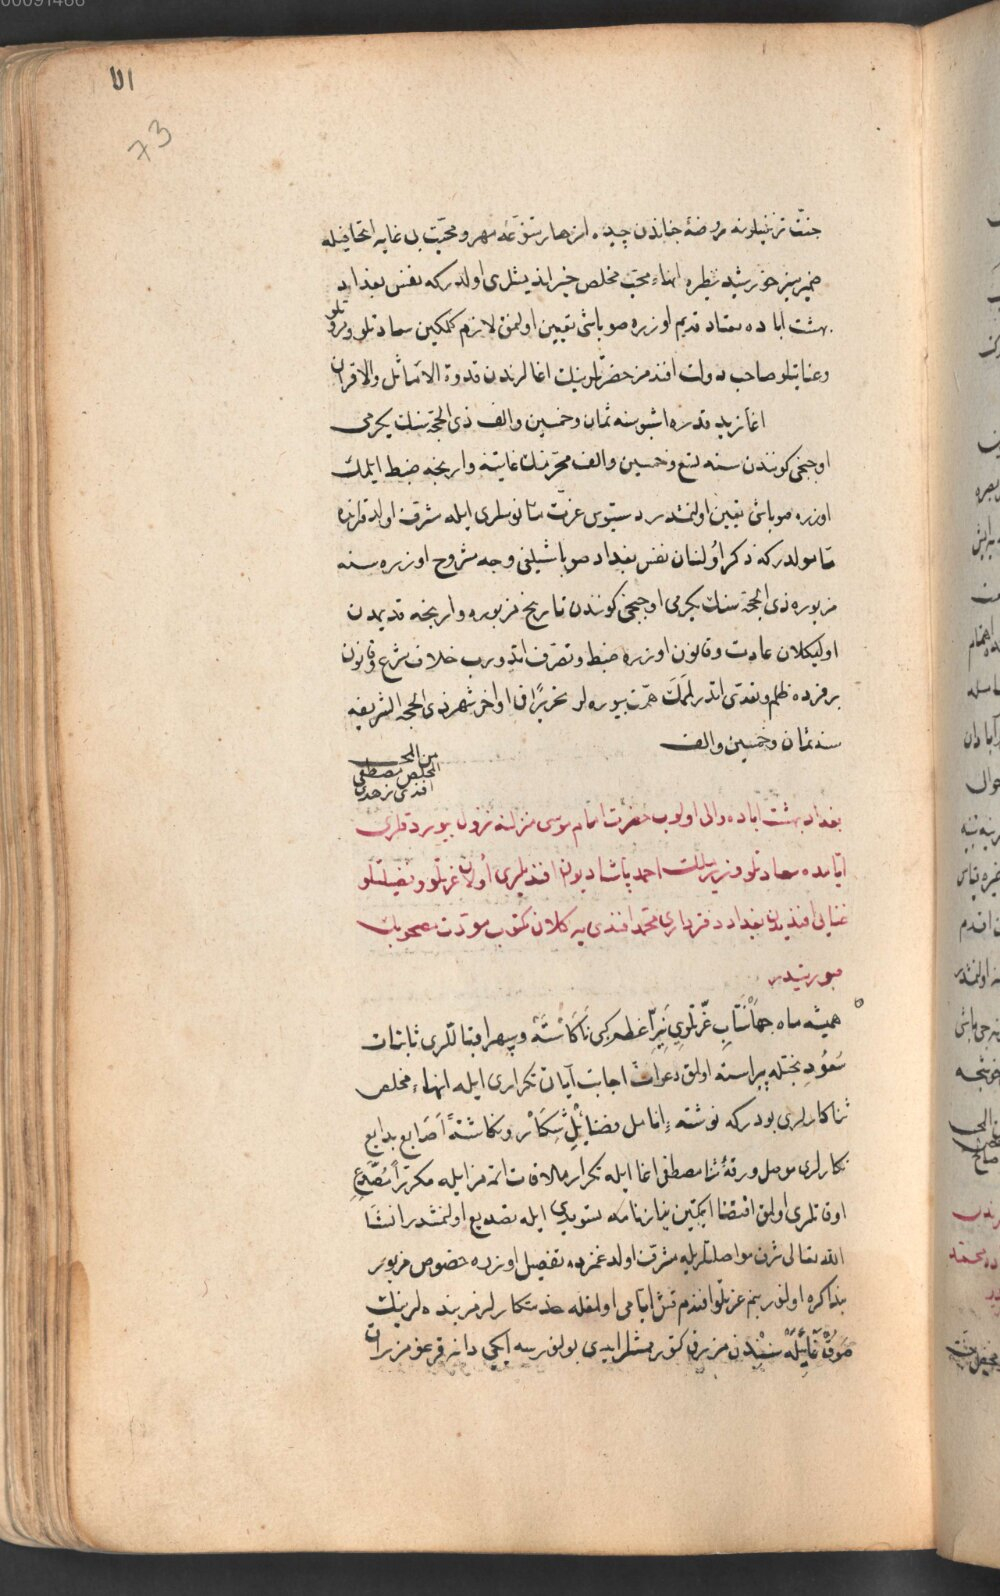 00091466
٧١
73
جنّت تزئینلرنه روضهٔ جناندن چیده ازهار متنوّعه مهر و محبّت بی غایه اتحافیله
ضمیر منیر خورشید نظیره انهاء محب مخلص خیر اندیشلری اولدر که نفس بغداد
بهشت اباده معتاد قدیم اوزره صوباشی تعیین اولنمق لازم کلمکین سعادتلو و مروتلو
وعنایتلو صاحب دولت افندمز حضرتلرینك اغالرندن قدوة الاماثل والاقران
اغا زید قدره اشبو سنه ثمان وخمسین والف ذی الحجّه سنك یكرمی
اوچنجی كونندن سنه تسع وخمسین والف محرّمنك غایتنه وارنجه ضبط ایلمك
اوزره صوباشی تعیین اولنمشدر دستبوس عزّت مأنوسلری ایله مشرف اولدقلرنده
مأمولدر كه ذكر اولنان نفس بغداد صوباشیلغی وجه مشروح اوزره سنه
مزبوره ذی الحجه سنك یكرمی اوچنجی كونندن تاریخ مزبوره وارنجه قدیمدن
اولیكلان عادت وقانون اوزره ضبط وتصرف ایتدروب خلاف شرع وقانون
بر فرده ظلم وتعدّی ایتدرلمامك همّت بیوره لر تحریرًا فی اواخر شهر ذی الحجه الشریفه
سنه ثمان وخمسین والف
من المحب
المخلص مصطفی
افندی
بغداد بهشت اباده والی اولوب حضرت امام موسی منزلنه نزول بیوردقلری
ایامده سعادتلو وزیر ملك احمد پاشا دیوان افندیلری اولان عزتلو وفضیلتلو
غنایی افندیدن بغداد دفترداری محمد افندی یه كلان مكتوب مودت مصحوبك
صورتیدر
همیشه ماه جهانتاب عزّتلری نیّر اعظم كبی ناكاسته وسپهر اقباللری ثابتات
سعود بختله پیراسته اولمق دعوات اجابت آیات تكراری ایله انهاء مخلص
ثناكارلری بودر كه نوشتهٔ انامل فضائل ونكاشتهٔ اصابع بدایع
نكارلری موصل ورقهٔ ثنا مصطفی اغا ایله تكرار ملاقات اتمزایله مكررًا مصدّع
اوقاتلری اولمق اقتضا ایتمكین نیازنامه تسویدی ایله تصدیع اولنمشدر انشا
الله تعالی شرف مواصلتلریله مشرف اولدغمزده تفصیل اوزره خصوص مزبور
مذاكره اولنور بنم عزتلو افندم قیش ایامی اولمغله خدمتكارلر مز بنده لرینك
سندن مزبرق كتورمشلر ایدی بولنورسه ایكی دانه قرغو مزراق